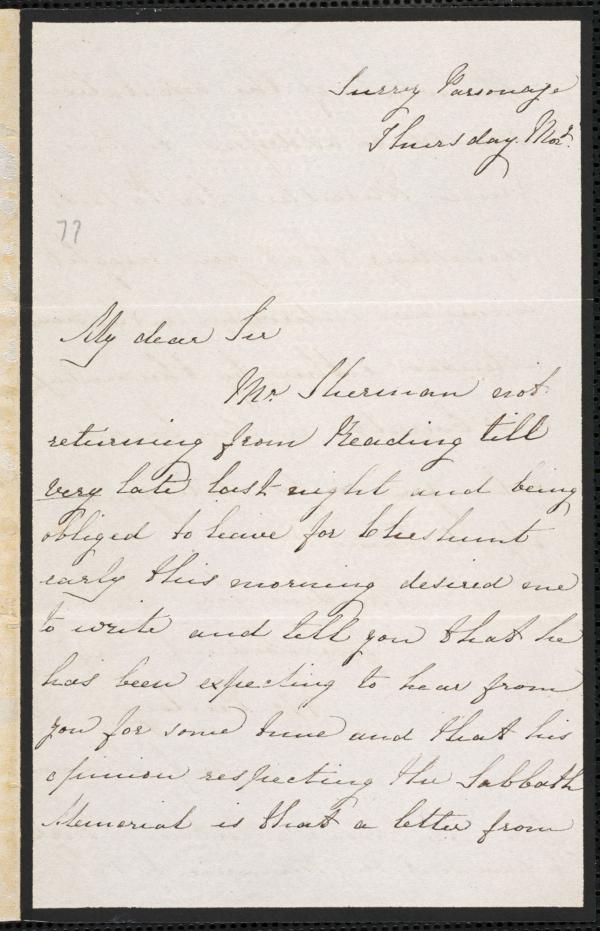 Surrey Parsonage
Thursday Morg.
77
My dear Sir
Mr. Sherman not
returning from Reading till
very late last night and being
obliged to leave for Cheshunt
early this morning desired me
to write and tell you that he
has been expecting to hear from
you for some time and that his
opinion respecting the Sabbath
Memorial is that a letter from